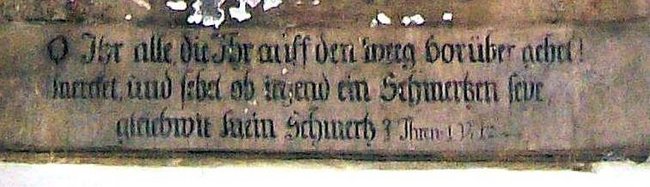 O Ihr alle, die Ihr auff den weeg vorüber gehet!
mereket, und sehet ob irgend ein Schmertzen seye,
gleichwie mein Schmertz? Thren: 1 V. 12